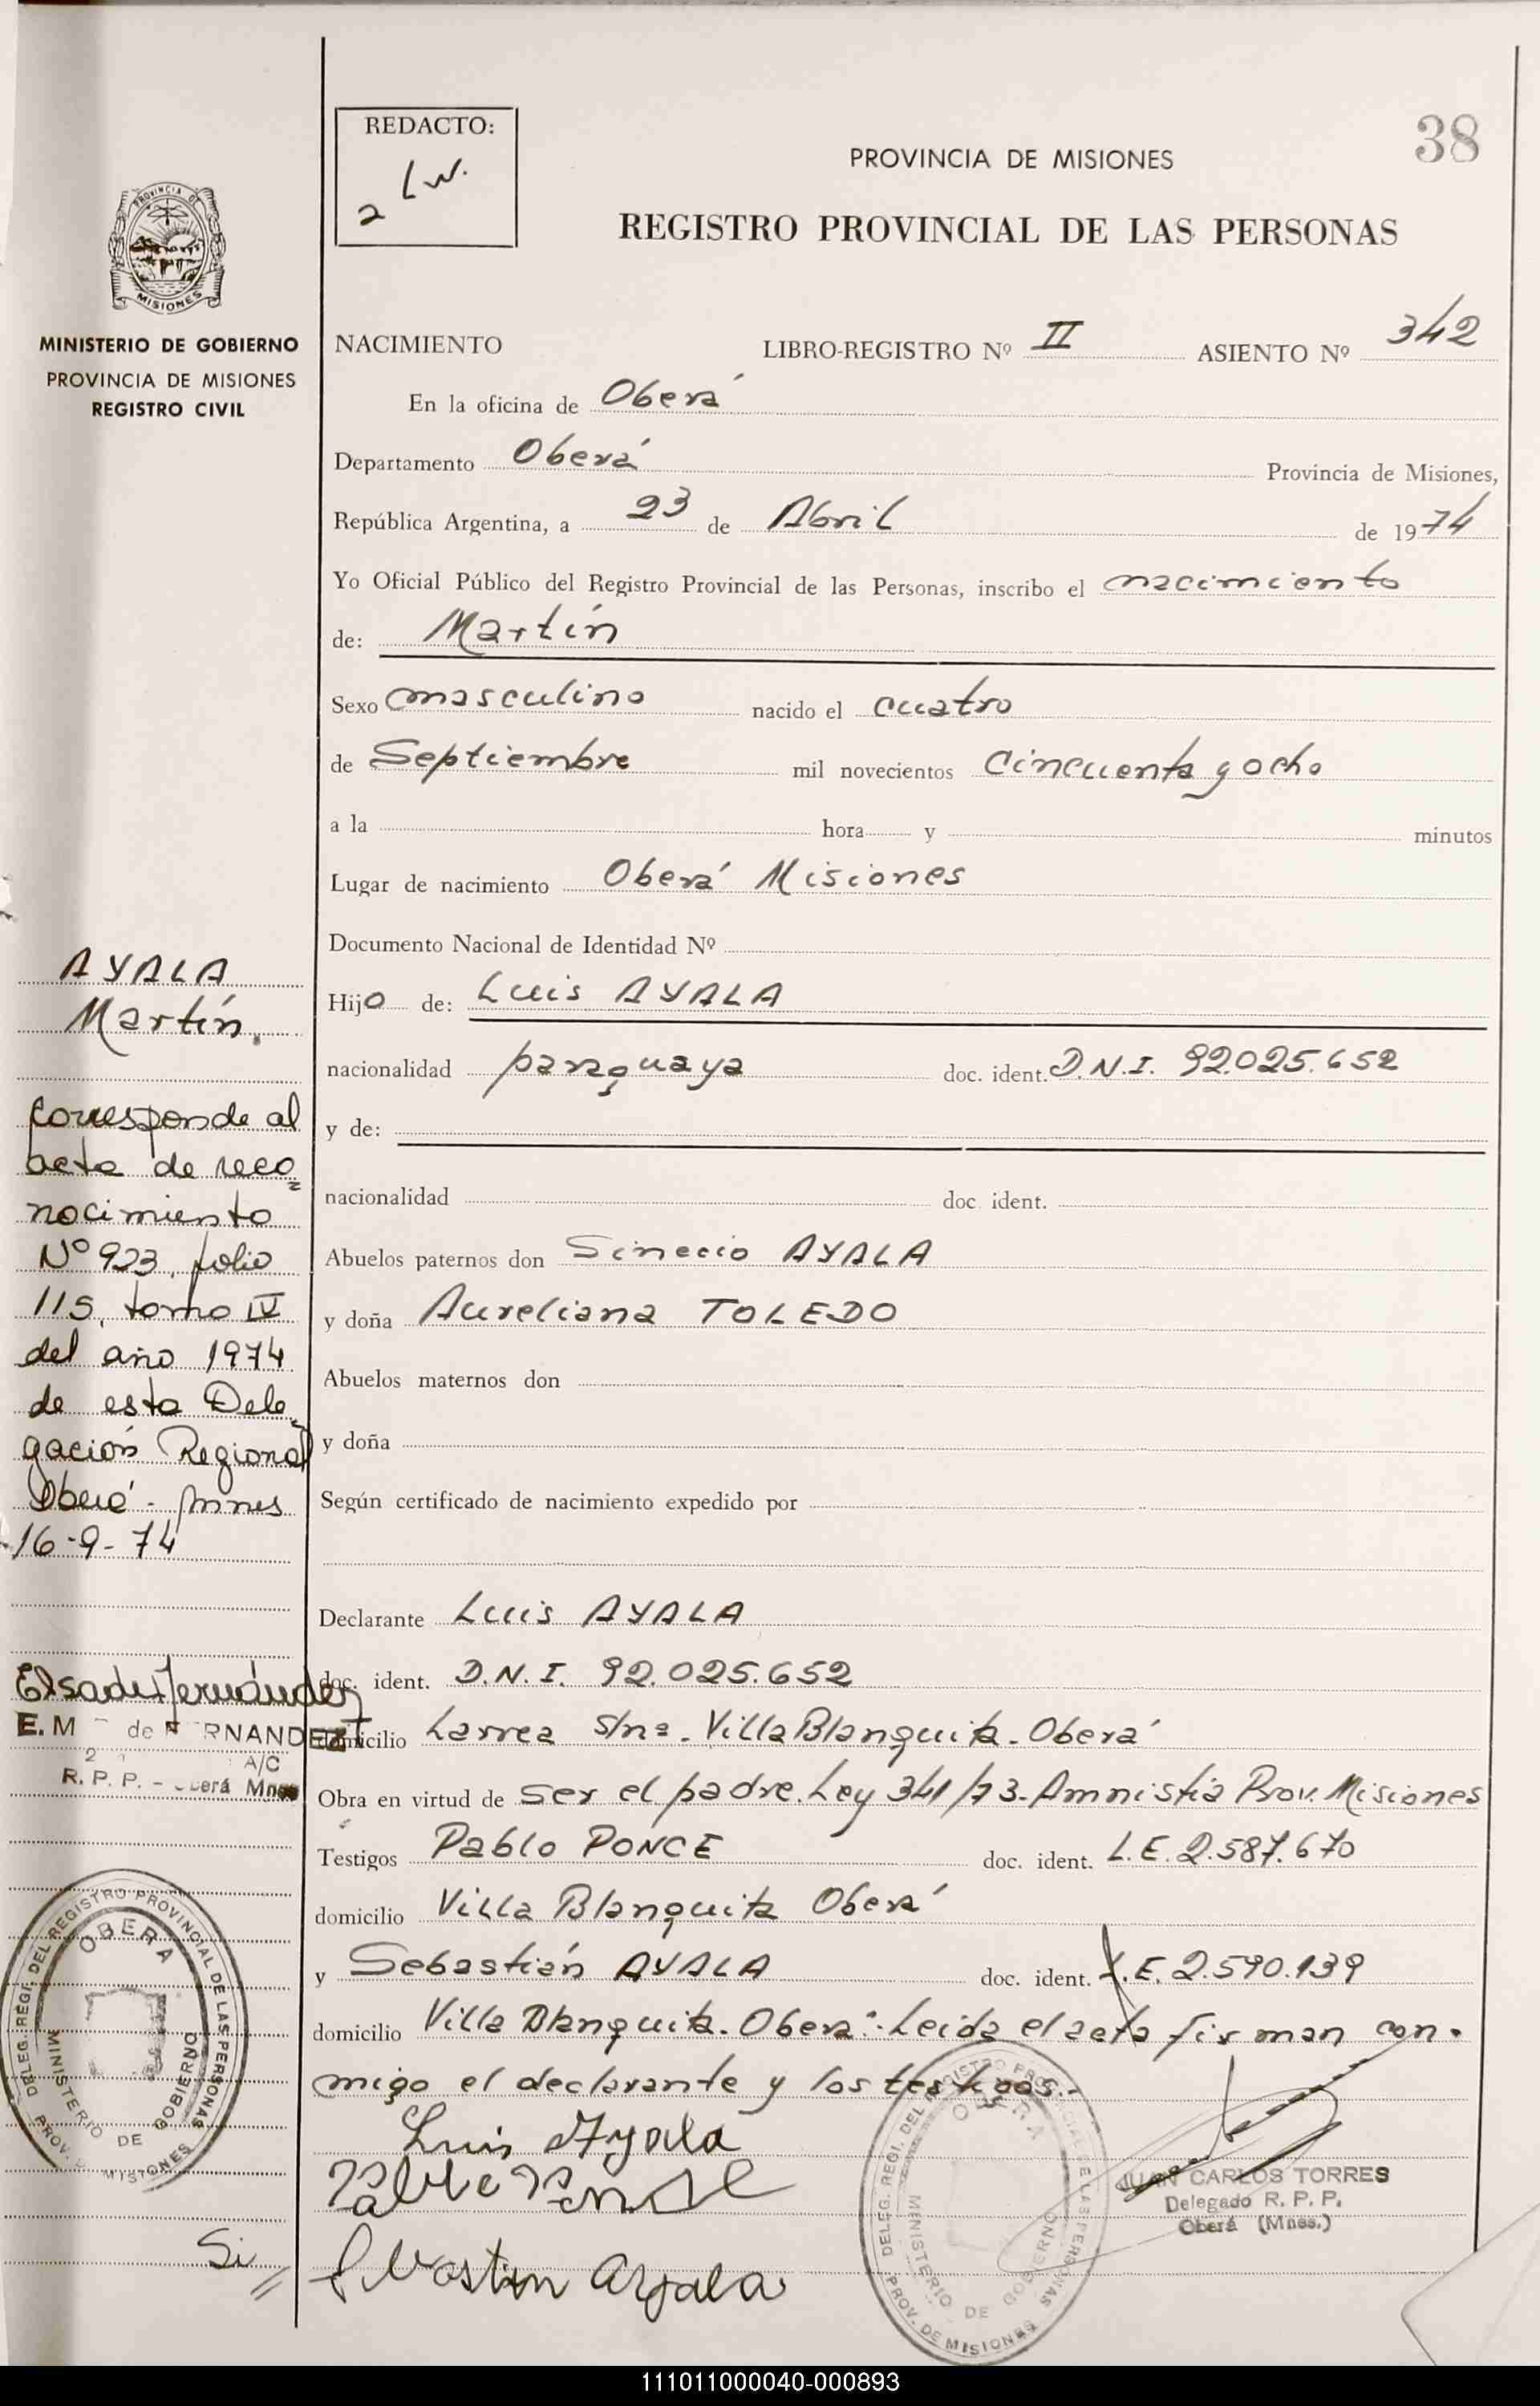 REDACTO:
2 LW.
38
PROVINCIA DE MISIONES
REGISTRO PROVINCIAL DE LAS PERSONAS
PROVINCIA DE
MISIONES
MINISTERIO DE GOBIERNO
PROVINCIA DE MISIONES
REGISTRO CIVIL
NACIMIENTO LIBRO-REGISTRO Nº II ASIENTO Nº 342
En la oficina de Oberá
Departamento Oberá Provincia de Misiones,
República Argentina, a 23 de Abril de 1974
Yo Oficial Público del Registro Provincial de las Personas, inscribo el nacimiento
de: Martín
Sexo masculino nacido el cuatro
de Septiembre mil novecientos cincuenta y ocho
a la hora y minutos
Lugar de nacimiento Oberá Misiones
Documento Nacional de Identidad Nº
Hijo de: Luis AYALA
nacionalidad paraguaya doc. ident. D.N.I. 92.025.652
y de:
nacionalidad doc. ident.
Abuelos paternos don Sinecio AYALA
y doña Aureliana TOLEDO
Abuelos maternos don
y doña
Según certificado de nacimiento expedido por
Declarante Luis AYALA
doc. ident. D.N.I. 92.025.652
domicilio Larrea s/nº. Villa Blanquita. Oberá
Obra en virtud de ser el padre. Ley 341/73. Amnistía Prov. Misiones
Testigos Pablo PONCE doc. ident. L.E. 2.587.670
domicilio Villa Blanquita Oberá
y Sebastián AYALA doc. ident. L.E. 2.590.139
domicilio Villa Blanquita. Oberá. Leída el acta firman con-
migo el declarante y los testigos.
Luis Ayala
Sebastian Ayala
JUAN CARLOS TORRES
Delegado R. P. P.
Oberá (Mnes.)
DELEG. REGI. DEL REGISTRO PROVINCIAL DE LAS PERSONAS
OBERA
MINISTERIO DE GOBIERNO
PROV. DE MISIONES
AYALA
Martín.
Corresponde al
acta de reco
nocimiento
Nº 923, folio
115, tomo IV
del año 1974
de esta Dele
gación Regional
Oberá - Mnes
16-9-74
Elsa de Fernández
E. M de FERNANDEZ
A/C
R. P. P. - Oberá Mnes
DELEG. REGI. DEL REGISTRO PROVINCIAL DE LAS PERSONAS
OBERA
MINISTERIO DE GOBIERNO
PROV. DE MISIONES
Si
111011000040-000893